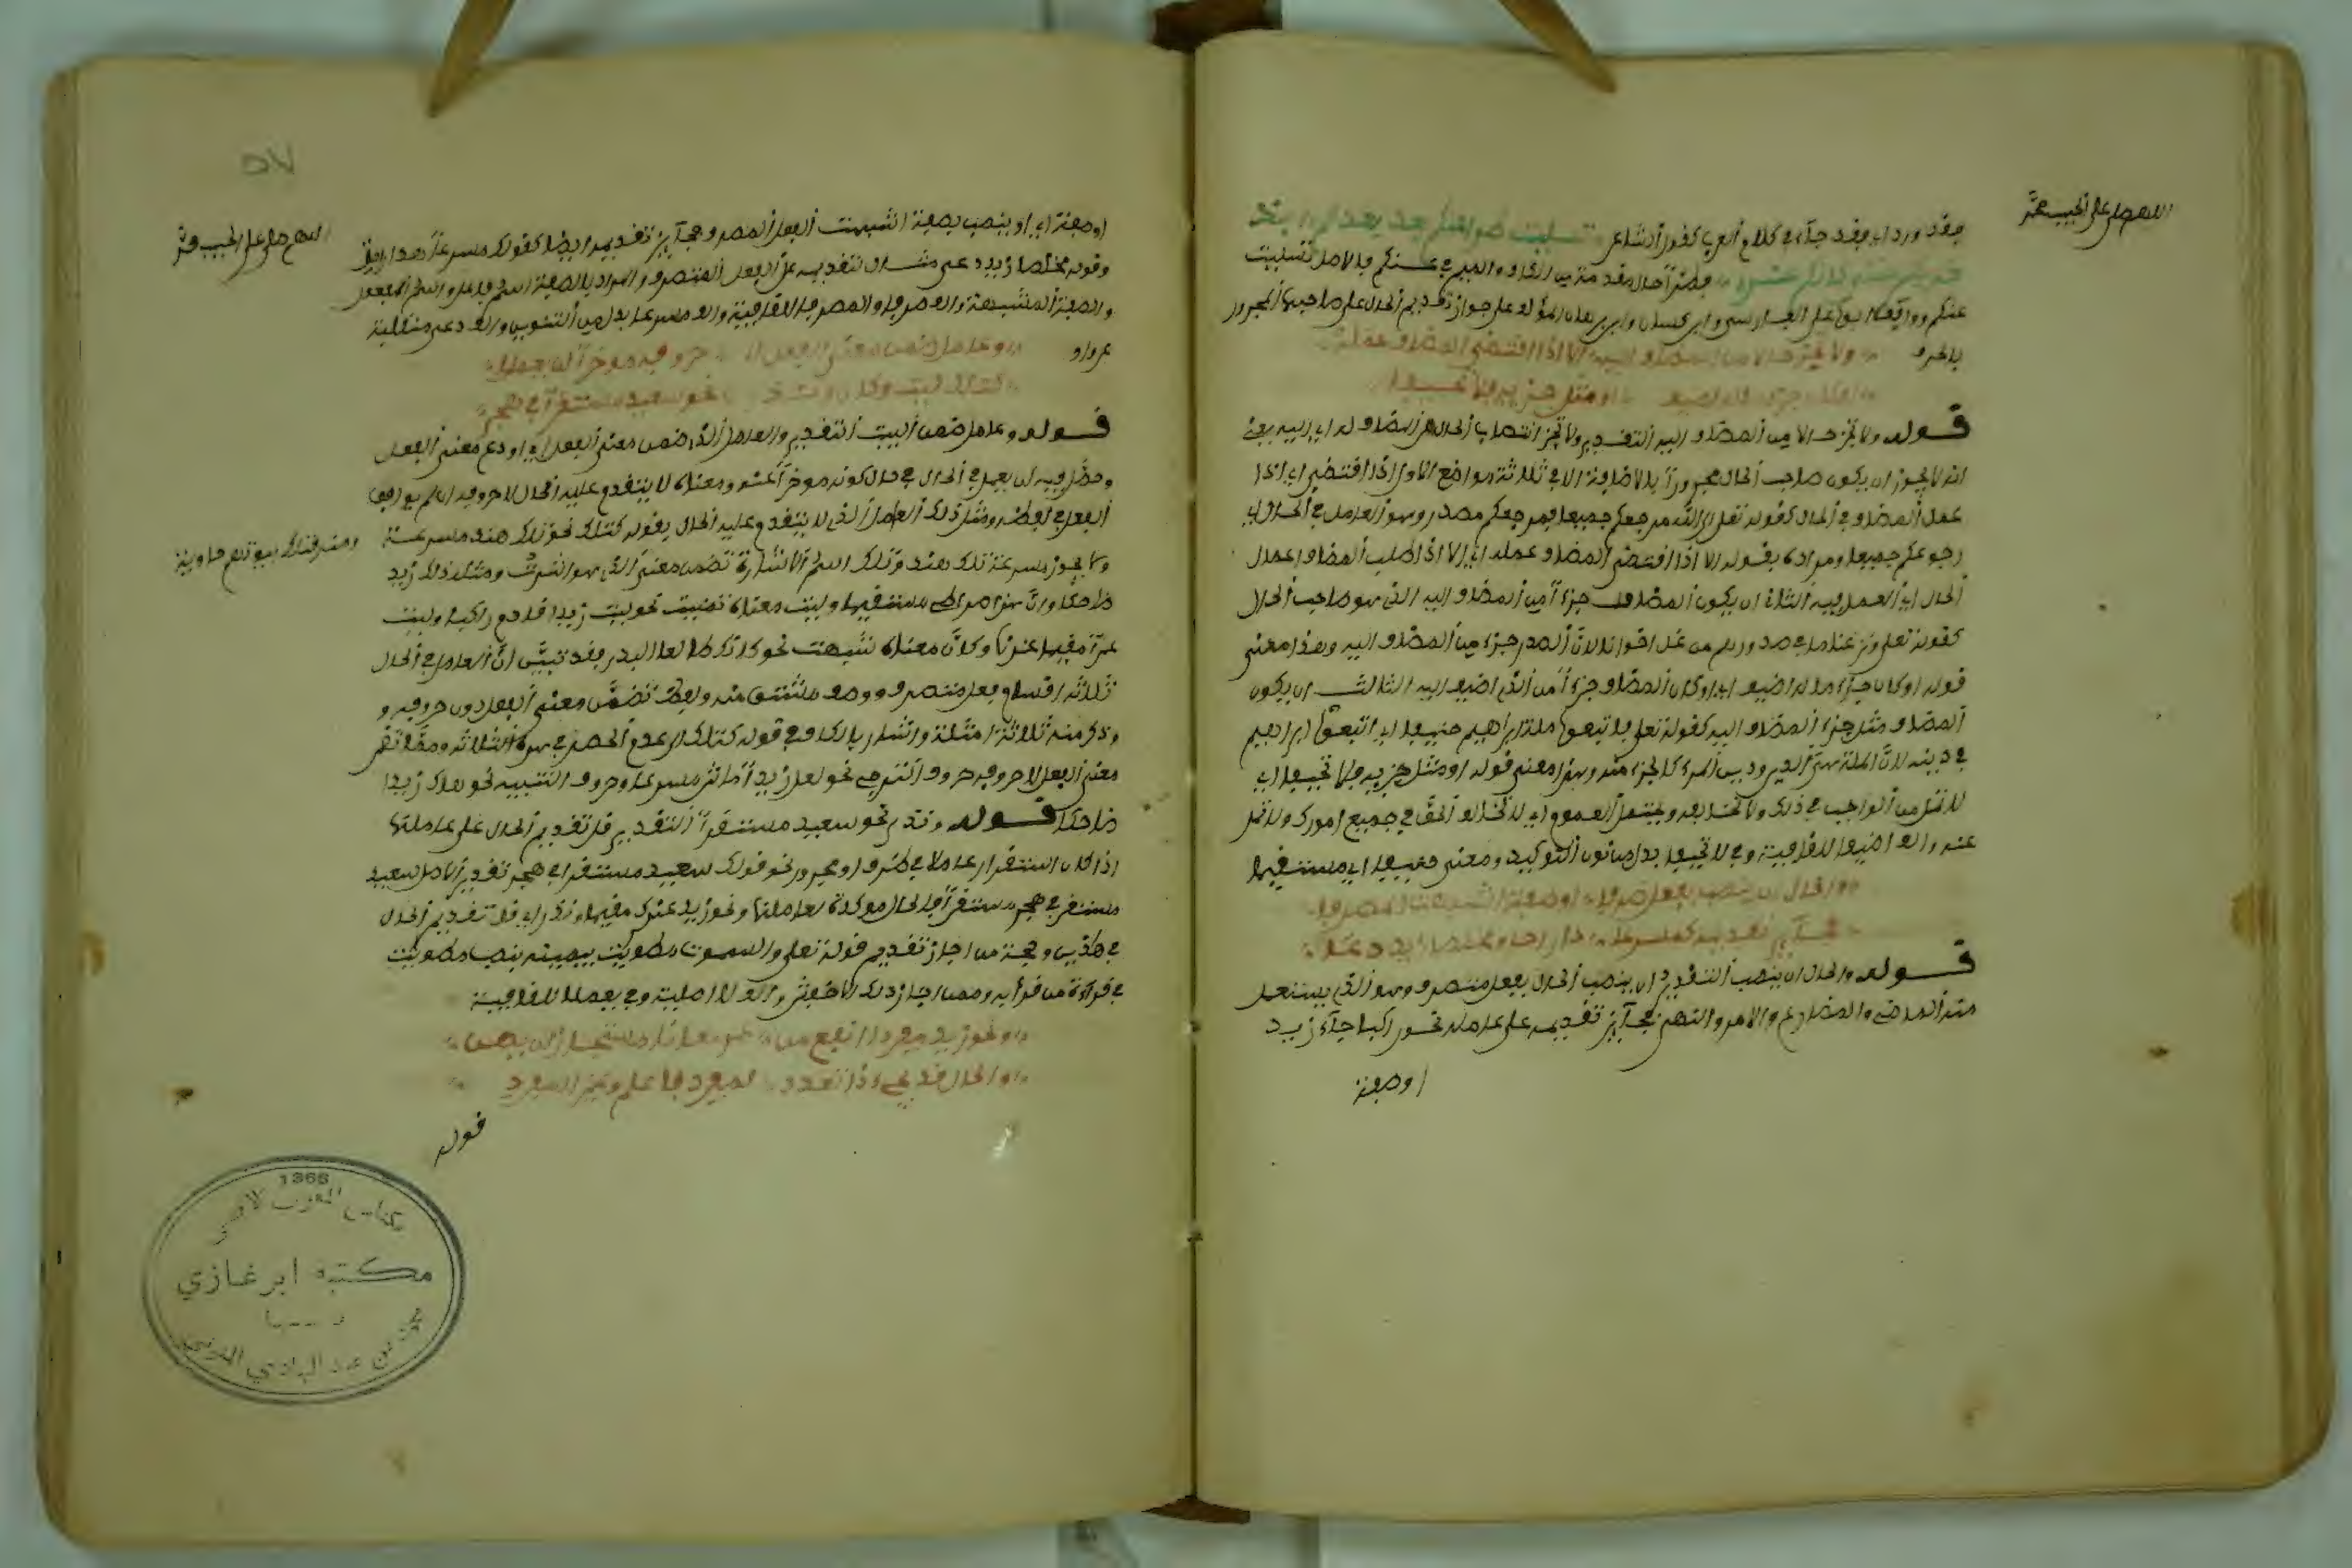 اللهم صل على الحبيب محمد
فقد ورد اي فقد جآء في كلام العرب كقول الشاعر تسليت طرا عنكم بعد بعدكم
بذكراكم حتى فطرا حال مقدمة من الكاف والميم في عنكم والاصل تسليت
عنكم ووافق ابو علي الفارسي وابن كيسان وابن برهان على جواز تقديم الحال على صاحبها المجرور
بالحرف ولا تجز حالا من المضاف اليه الا اذا اقتضى المضاف عمله
او كان جزء ما له اضيفا او مثل جزئه فلا تحيفا
قوله ولا تجز حالا من المضاف اليه التقدير ولا تجز انتصاب الحال من المضاف له اي اليه يعني
انه لا يجوز ان يكون صاحب الحال مجرورا بالاضافة الا في ثلاثة مواضع الاول اذا اقتضى اي اذا
عمل المضاف في الحال كقوله تعلى الى الله مرجعكم جميعا فمرجعكم مصدر وهو العامل في الحال اي
رجوعكم جميعا ومراده بقوله الا اذا اقتضى المضاف عمله اي الا اذا طلب المضاف اعمال
الحال اي العمل فيه الثاني ان يكون المضاف جزءا من المضاف اليه الذي هو صاحب الحال
كقوله تعلى ونزعنا ما في صدورهم من غل اخوانا لان الصدر جزء من المضاف اليه وهذا معنى
قوله او كان جزء ما له اضيفا اي او كان المضاف جزءا من الذي اضيف اليه الثالث ان يكون
المضاف مثل جزء المضاف اليه كقوله تعلى فاتبعوا ملة ابراهيم حنيفا اي اتبعوا ابراهيم
في دينه لان الملة هي الدين ودين المرء كالجزء منه وهذا معنى قوله او مثل جزئه فلا تحيفا اي
لا تمل من الواجب في ذلك ولا تخالفه ويحتمل العموم اي لا تخالف الحق في جميع امورك ولا تمل
عنه والف اضيفا للقافية وفي لا تحيفا بدل من نون التوكيد ومعنى حنيفا اي مستقيما
والحال ان ينصب بفعل صرفا او صفة اشبهت المصرفا
فجآئز تقديمه كمسرعا ذا راحل ومخلصا زيد دعا
قوله والحال ان ينصب التقدير ان ينصب الحال بفعل متصرف وهو الذي يستعمل
منه الماضي والمضارع والامر والنهي فجآئز تقديمه على عامله نحو راكبا جآء زيد
او صفة
٥٧
اللهم صل على الحبيب محمد
او صفة اي او ينصب بصفة اشبهت الفعل المصرف فجآئز تقديمه ايضا كقولك مسرعا هذا راحل
وقوله مخلصا زيد دعى مثال لتقديمه على الفعل المتصرف والمراد بالصفة اسم فاعل واسم المفعول
والصفة المشبهة والف صرفا والمصرفا للقافية والف مسرعا بدل من التنوين والف دعى منقلبة
عن واو وعامل ضمن معنى الفعل لا حروفه موخرا لن يعملا
كتلك ليت وكان وندر نحو سعيد مستقرا في هجر
قوله وعامل ضمن البيت التقدير والعامل الذي ضمن معنى الفعل اي اودع معنى الفعل
وحصل فيه لن يعمل في الحال في حال كونه موخرا عنه ومعناه لا يتقدم عليه الحال لا حروفه اي لم يوافق
الفعل في لفظه ومثل ذلك العامل الذي لا يتقدم عليه الحال بقوله كتلك نحو تلك هند مسرعة
ومنه فتلك بيوتهم خاوية
ولا يجوز مسرعة تلك هند وتلك اسم الاشارة تضمن معنى الذي هو اشرت ومثله ذلك زيد
ضاحكا وان هذا صراطي مستقيما وليت معناه تمنيت نحو ليت زيدا قادم راكبا وليت
عمرا مقيما عندنا وكان معناه شبهت نحو كانك طالعا البدر فقد تبين ان العامل في الحال
ثلاثة اقسام فعل متصرف ووصف مشتق منه ولفظ تضمن معنى الفعل دون حروفه و
وذكر منه ثلاثة امثلة واشار بالكاف في قوله كتلك الى عدم الحصر في هذه الثلاثة ومما تضمن
معنى الفعل لا حروفه حروف الترجي نحو لعل زيدا آمالي مسرعا وحروف التنبيه نحو هاك زيدا
ضاحكا قوله وندر نحو سعيد مستقرا التقدير قل تقديم الحال على عاملها
اذا كان استقرار عاملا في ظرف او مجرور نحو قولك سعيد مستقرا في هجر تقدير الاصل سعيد
مستقر في هجر مستقرا فالحال موكدة لعاملها ونحو زيد عندك مقيما وندر اي قل تقديم الحال
في هاذين وحجة من اجاز تقديم قوله تعلى والسموت مطويت بيمينه بنصب مطويت
في قرآءة من قرأ به وممن اجاز ذلك الاخفش والف لا اصلية وفي يعملا للقافية
ونحو زيد مفردا انفع من عمرو معانا مستجاز لن يهن
والحال قد يجيء ذا تعدد لمفرد فاعلم وغير المفرد
قوله
1366
مكناس المغرب الاقصى
مكتبة ابن غازي
محمد بن عبد الهادي المنوني